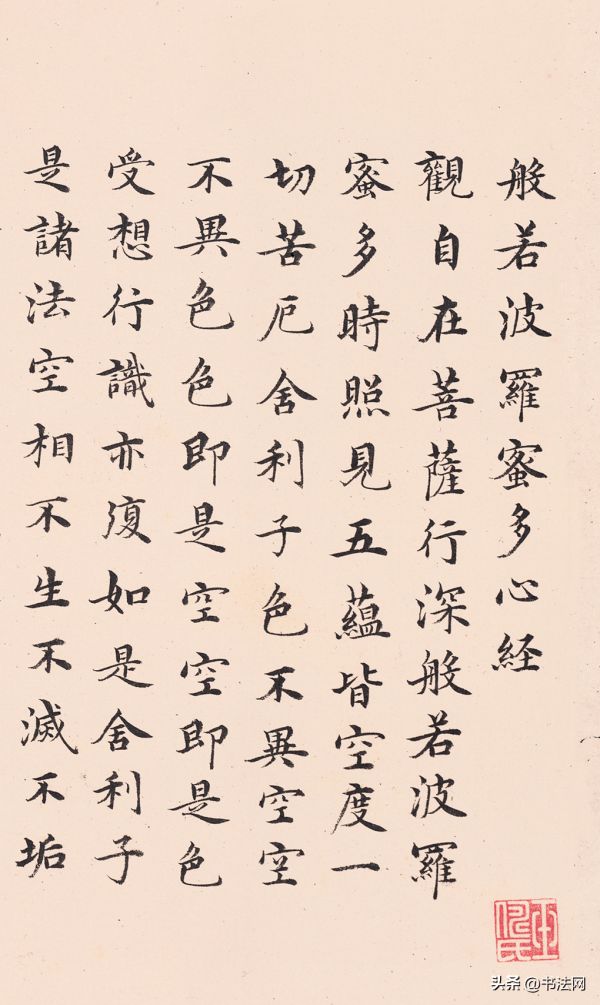 般若波羅蜜多心経
觀自在菩薩行深般若波羅
蜜多時照見五蘊皆空度一
切苦厄舍利子色不異空空
不異色色即是空空即是色
受想行識亦復如是舍利子
是諸法空相不生不滅不垢
头条 @书法网